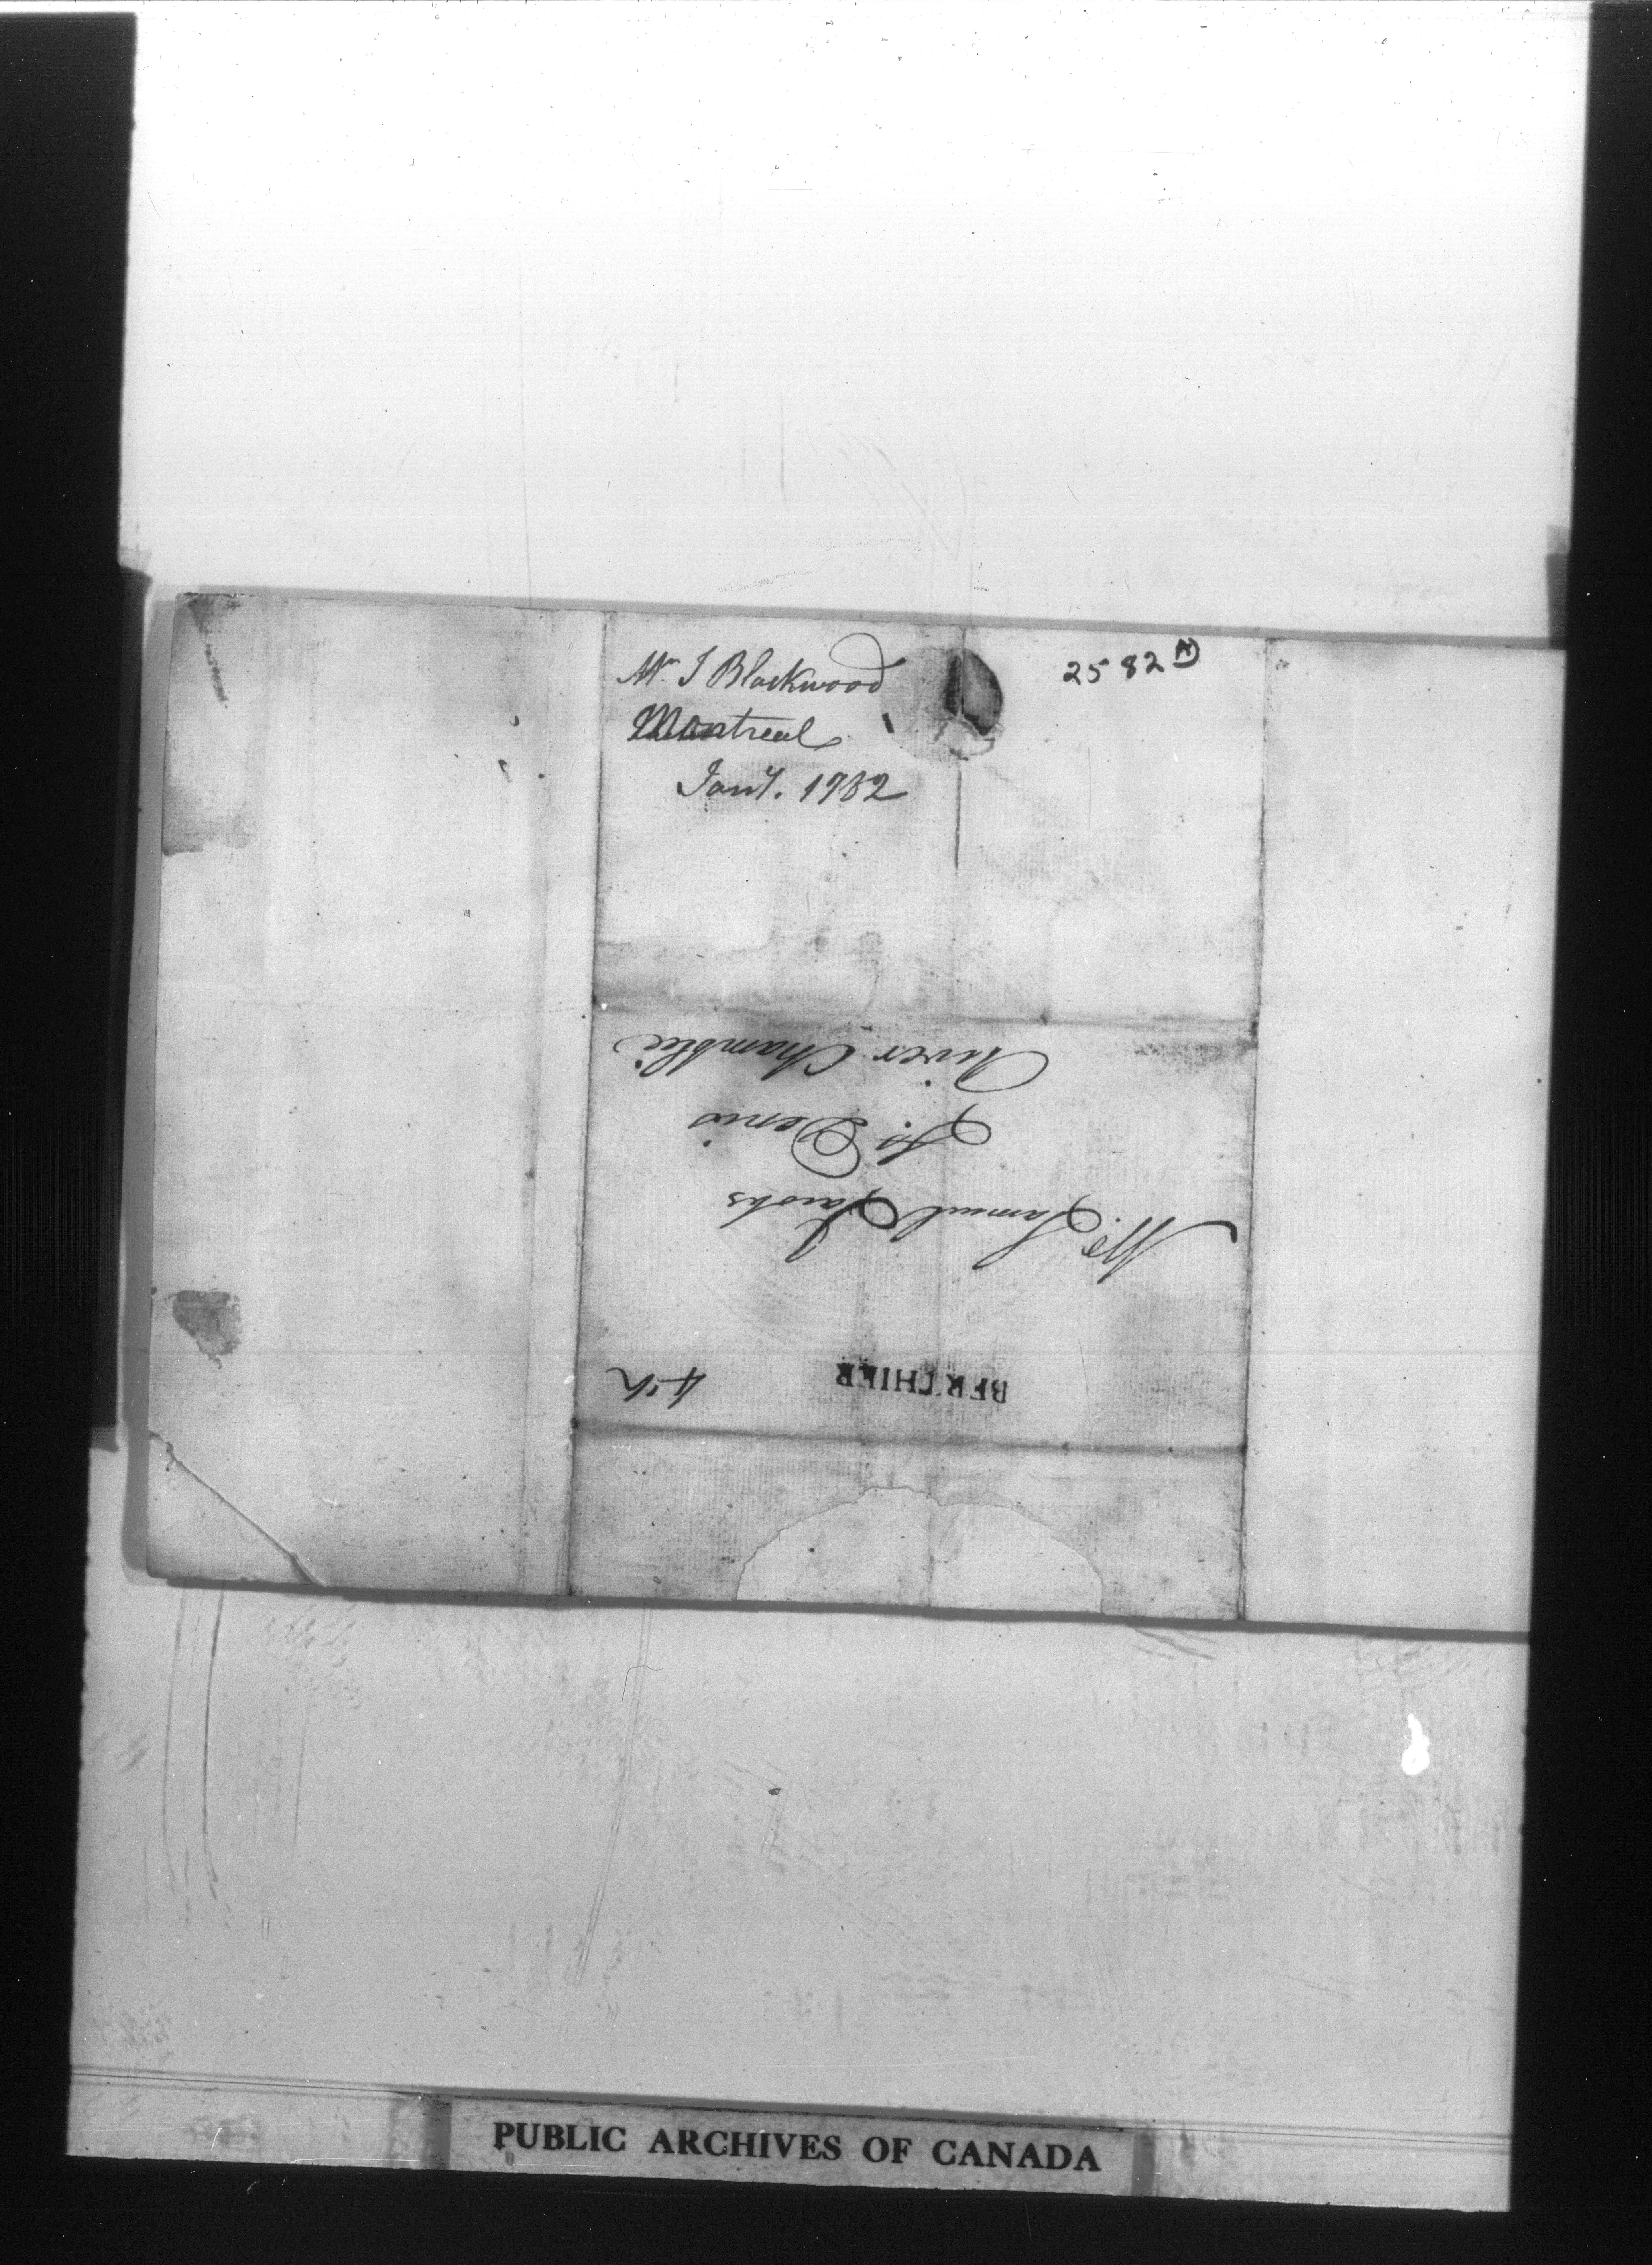 Mr. J Blackwood
Montreal
Jany. 1782
2582 A
BERTHIER
Mr. Samuel Jacobs
St. Denis
River Chamblie
PUBLIC ARCHIVES OF CANADA